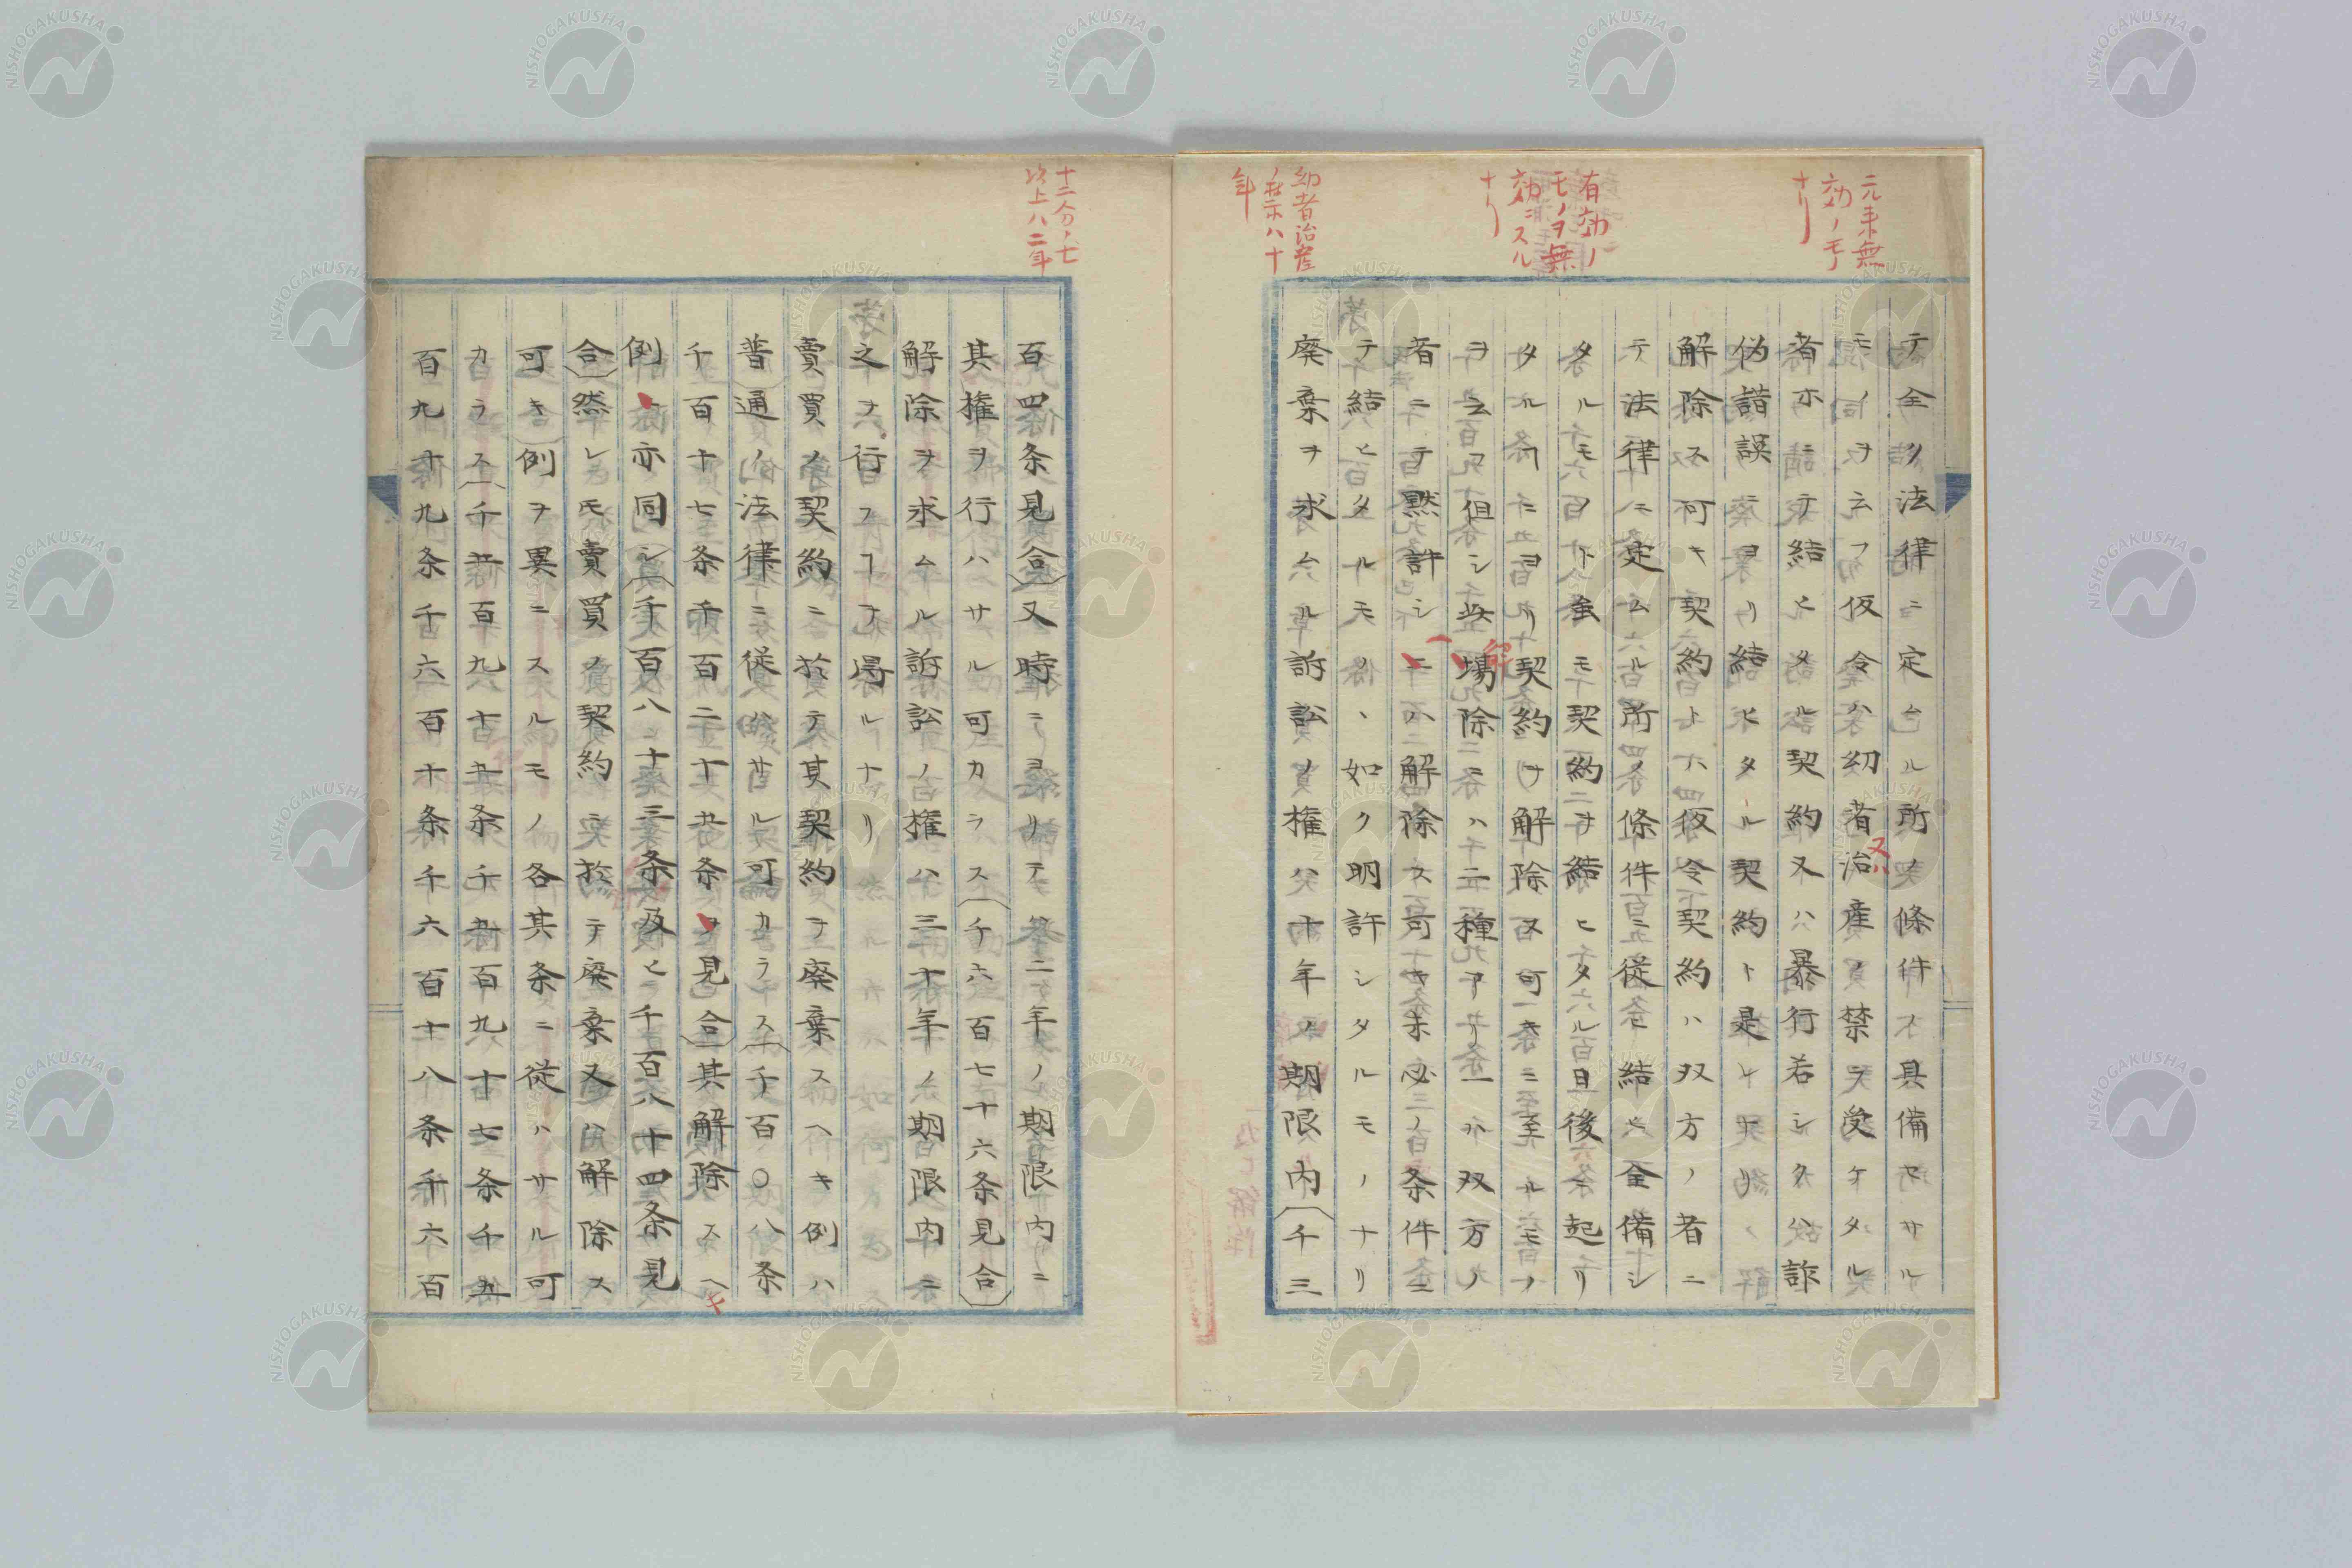 元来無
効ノモノ
ナリ
有効ノ
モノヲ無
効ニスル
ナリ
幼者治産
ノ禁ハ十
年
テ全ク法律ニ定ムル所ノ條件ヲ具備セサル
モノヲ云フ仮令ハ幼者又治産ノ禁ヲ受ケタル
者ホニテ結ヒタル契約又ハ暴行若シクハ詐
偽誤ニヨリ結ヒタル契約ト是レナリ
解除ス可キ契約トハ仮令契約ハ双方ノ者ニ
テ法律ニ定ムル所ノ條件ニ従ヒ結ヒ全備シ
タルモノト虽モ契約ヲ結ヒタル日後ニ起リ
タルヿニヨリ契約ヲ解除ス可キニ至ルモノ
ヲ云フ但シ此場解除ニハ二種アリ一ハ双方ノ
者ニテ黙許シ一ニハ解除ス可キ未必ノ条件ニ
テ結ヒタルモノヽ如ク明許シタルモノナリ
廃棄ヲ求ムル訴訟ノ権ハ十年ノ期限内(千三
十二分ノ七
以上ハ二年
百四条見合)又時ニヨリテ二ケ年ノ期限内ニ
其権ヲ行ハサル可カラス(千六百七十六条見合)
解除ヲ求ムル訴訟ノ権ハ三十年ノ期限内ニ
之ヲ行フヿヲ得ルナリ
賣買ノ契約ニ於テ其契約ヲ廃棄スヘキ例ハ
普通ノ法律ニ従ハサル可カラス(千百〇八条
千百十七条千百二十九条ヲ見合)其解除スヘキ
例亦同シ(千百八十三条及ヒ千百八十四条見
合)然レ𪜈賣買ノ契約ニ於テ廃棄又ハ解除ス
可キ例ヲ異ニスルモノ各其条ニ従ハサル可
カラス(千五百九十九条千五百九十七条千五
百九十九条千六百十条千六百十八条千六百